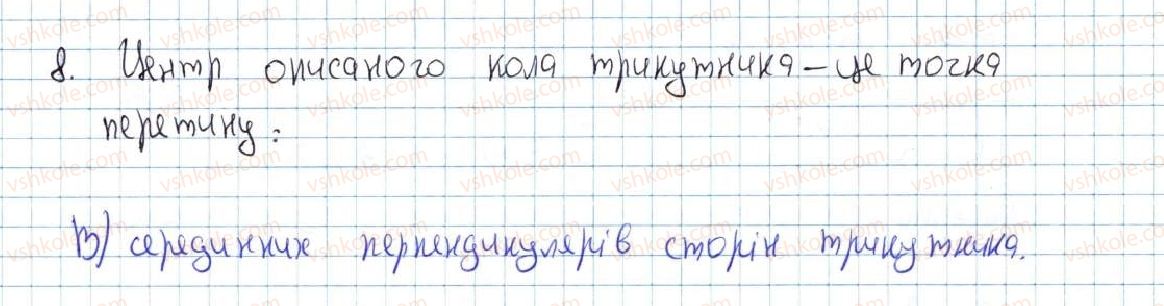 8. Центр описаного кола трикутника – це точка
перетину:
В) серединних перпендикулярів сторін трикутника.